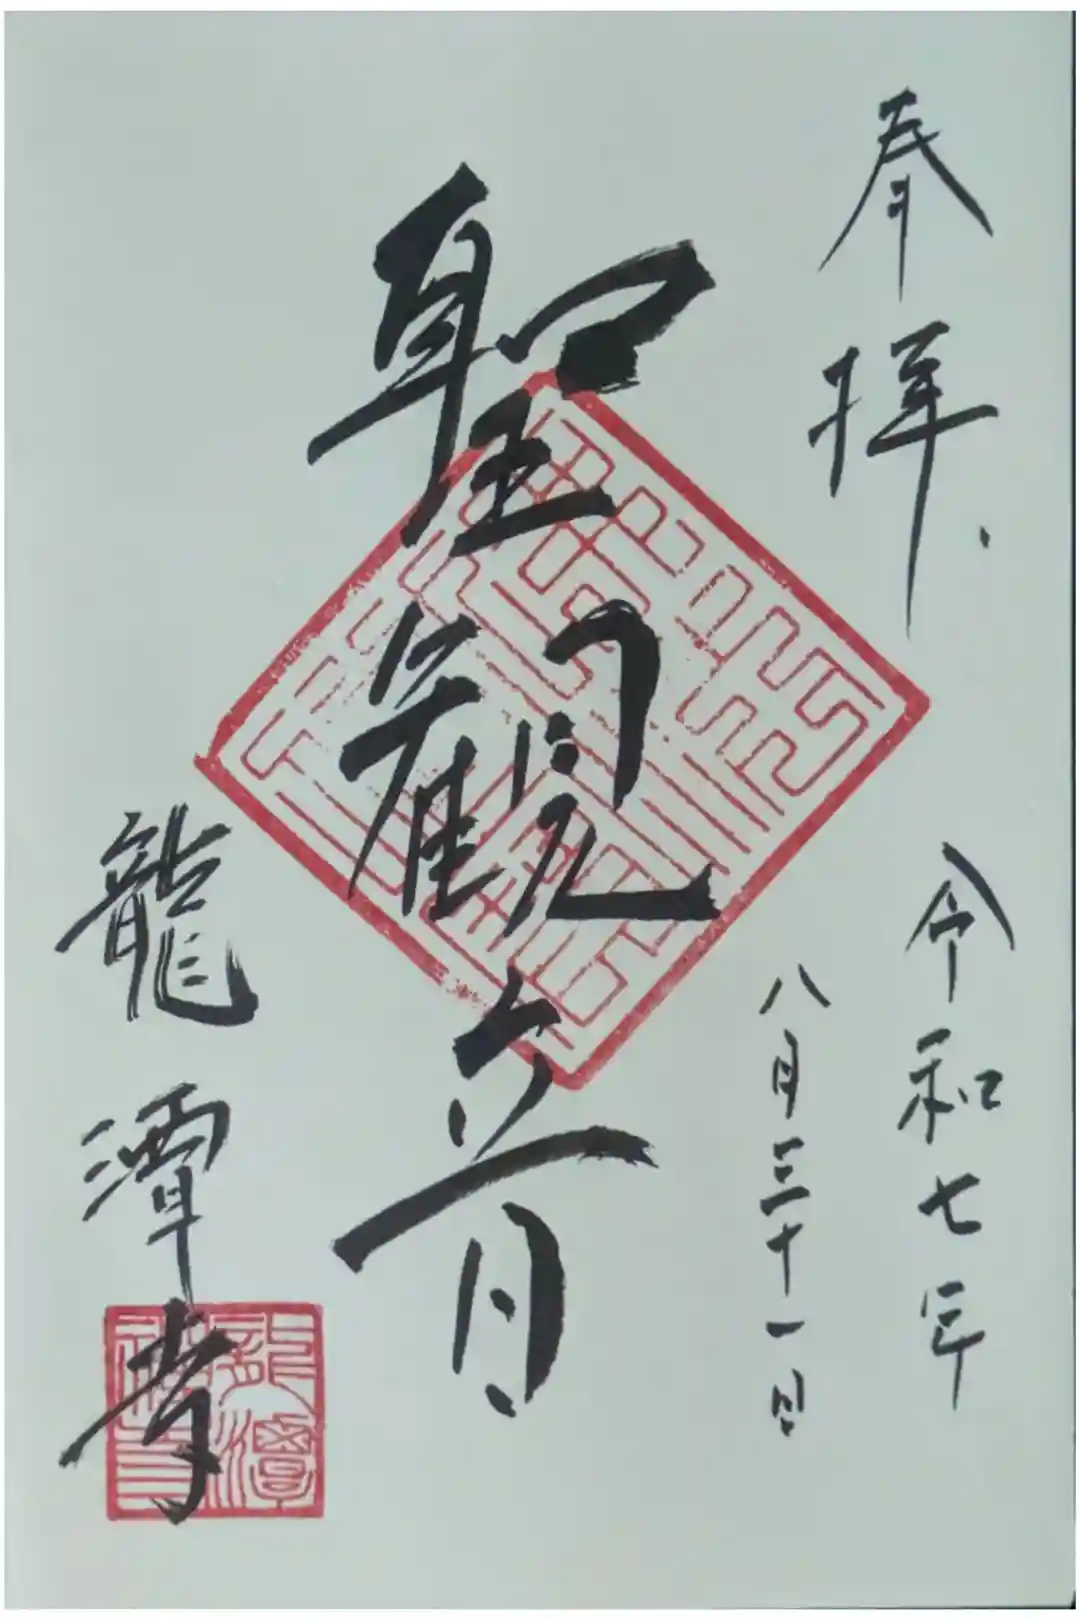 奉拝
令和七年
八月三十一日
聖観音
龍潭寺